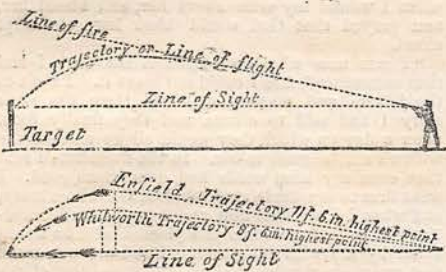 Line of fire
Trajectory or Line of flight
Line of Sight
Target
Enfield Trajectory 11f. 6in. highest point
Whitworth Trajectory 8f. 6in. highest point
Line of Sight